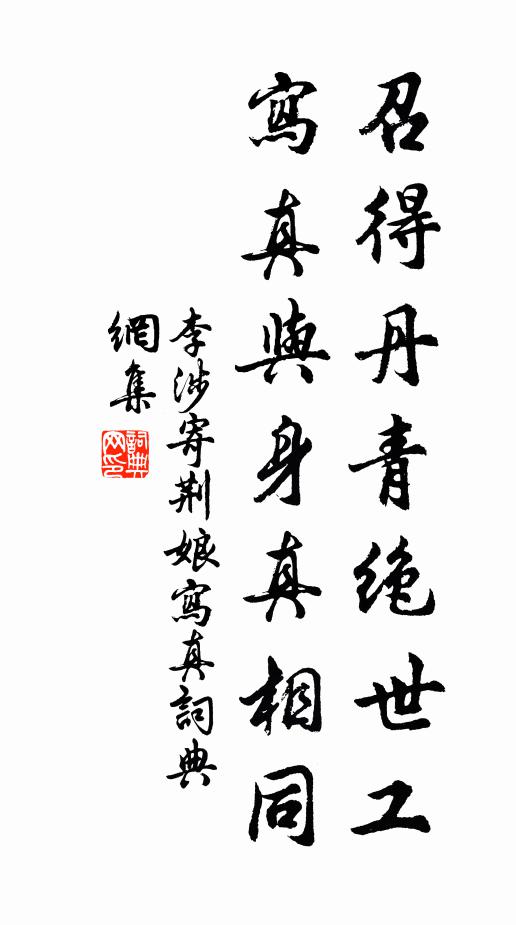 召得丹青絶世工
寫真與身真相同
李涉寄荆娘寫真詞典
網集
詞典
网印